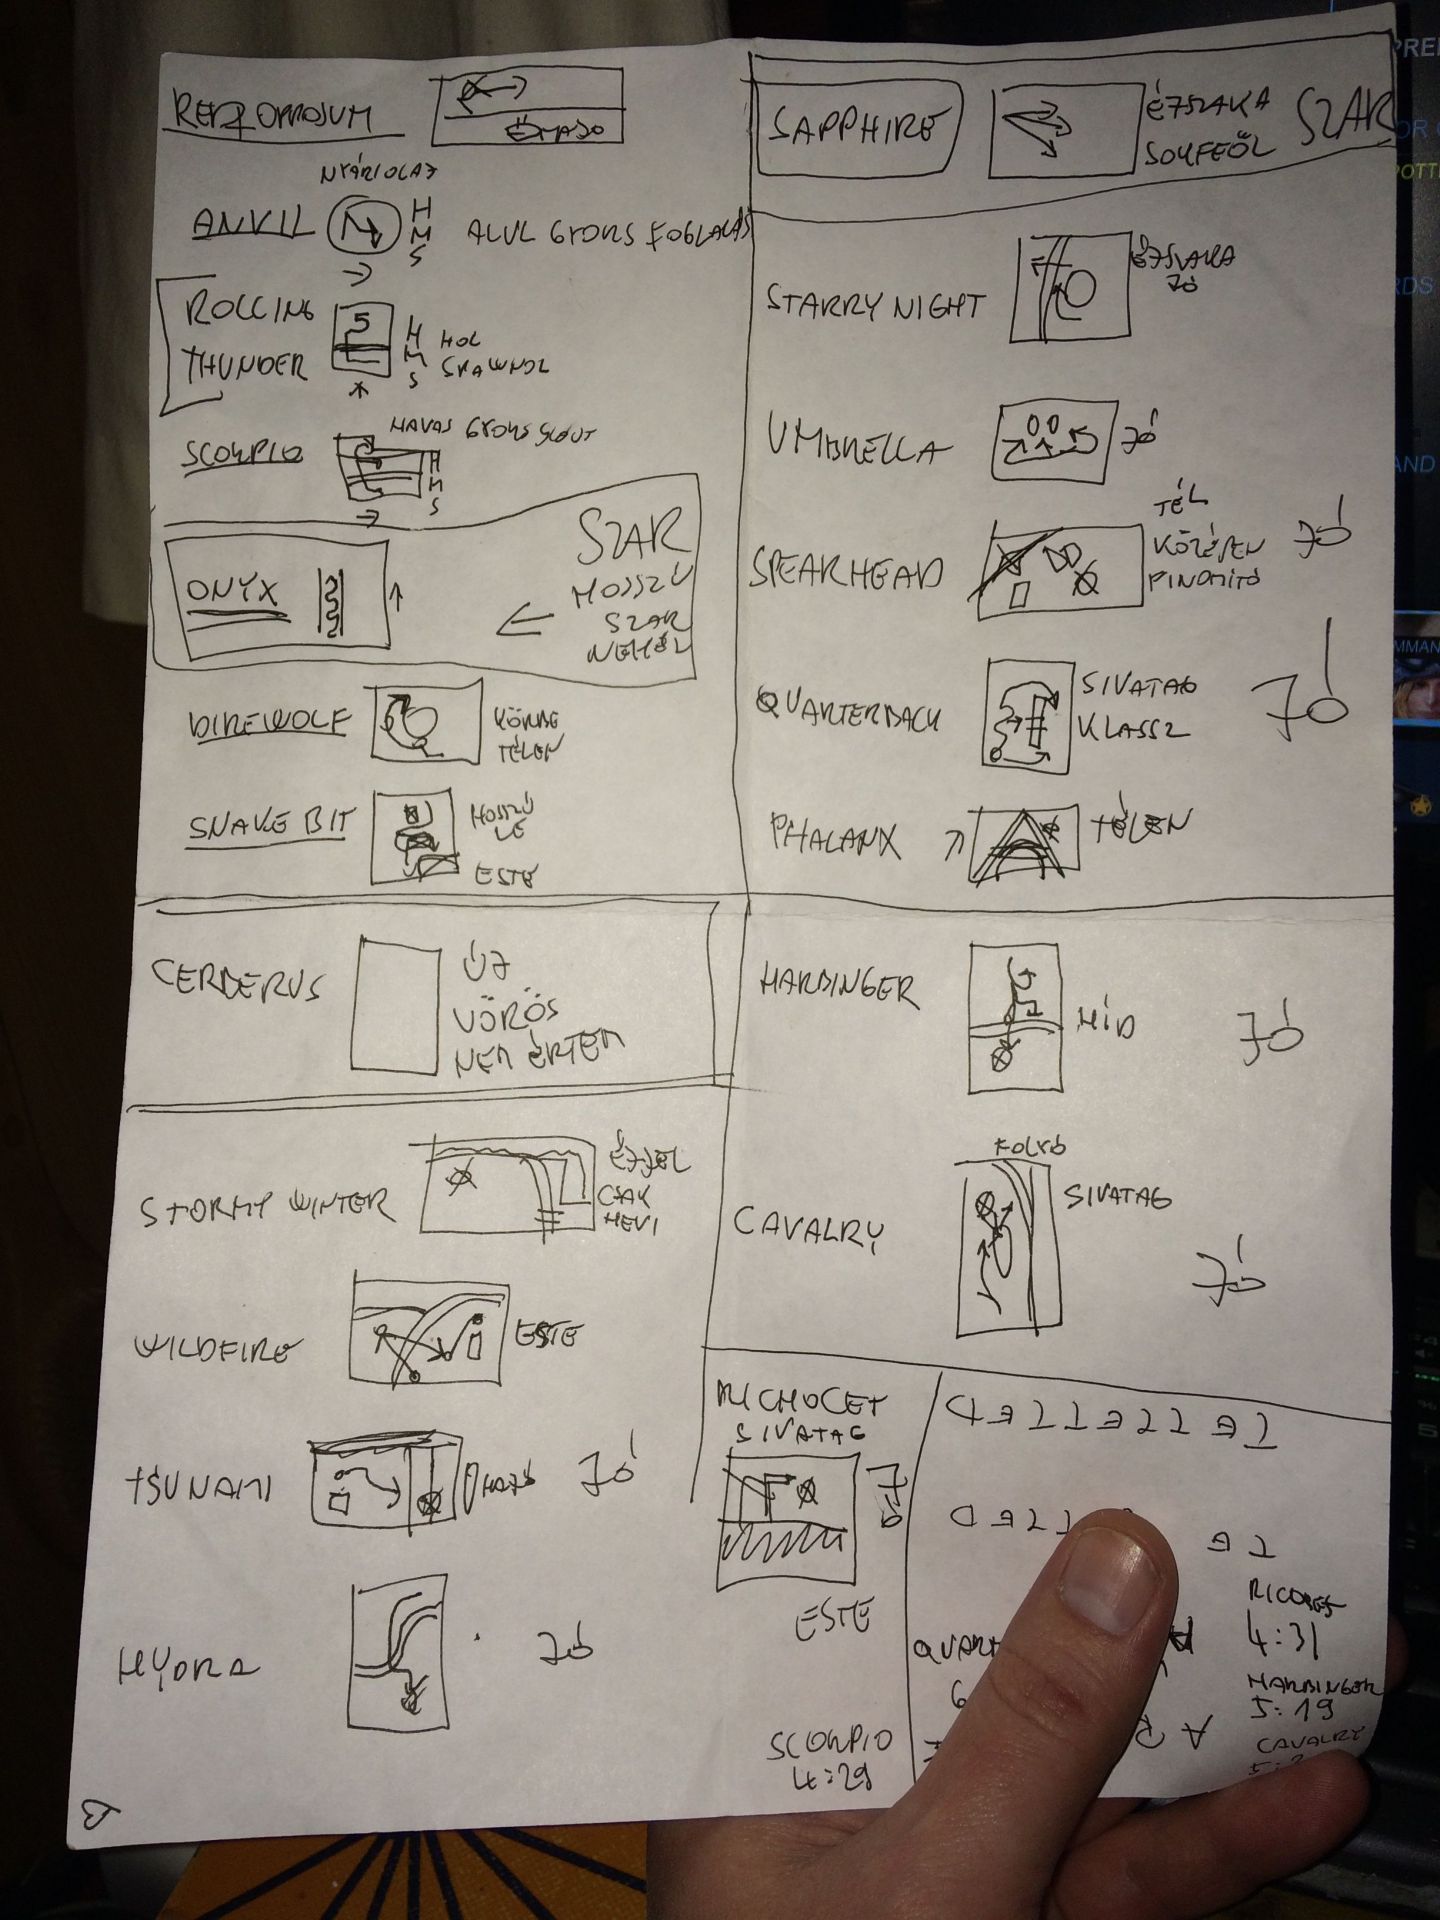 ANVIL
NYÁRIOLAJ
H
M
S
ROLLING
THUNDER
5
H
M
S
HOL
SCORPIO
HAVAS GYORS
H
M
S
SZAR
HOSSZÚ
SZAR
NEHÉZ
ONYX
DIREWOLF
KÖRBE
TÉLEN
SNAKE BIT
HOSSZÚ
LE
ESTE
CERBERUS
ÚJ
VÖRÖS
NEM ÉRTEM
STORMY WINTER
ÉJJEL
CSAK
HEVI
WILDFIRE
ESTE
TSUNAMI
HAJÓ
JÓ
HYDRA
JÓ
SAPPHIRE
ÉJSZAKA
SZAR
STARRY NIGHT
ÉJSZAKA
JÓ
UMBRELLA
JÓ
SPEARHEAD
TÉL
KÖZÉPEN
FINOMÍTÓ
JÓ
QUARTERBACK
SIVATAG
KLASSZ
JÓ
PHALANX
TÉLEN
HARBINGER
HÍD
JÓ
CAVALRY
FOLYÓ
SIVATAG
JÓ
RICHOCET
SIVATAG
JÓ
ESTE
SCORPIO
4:29
4:31
HARBINGER
5:19
CAVALRY